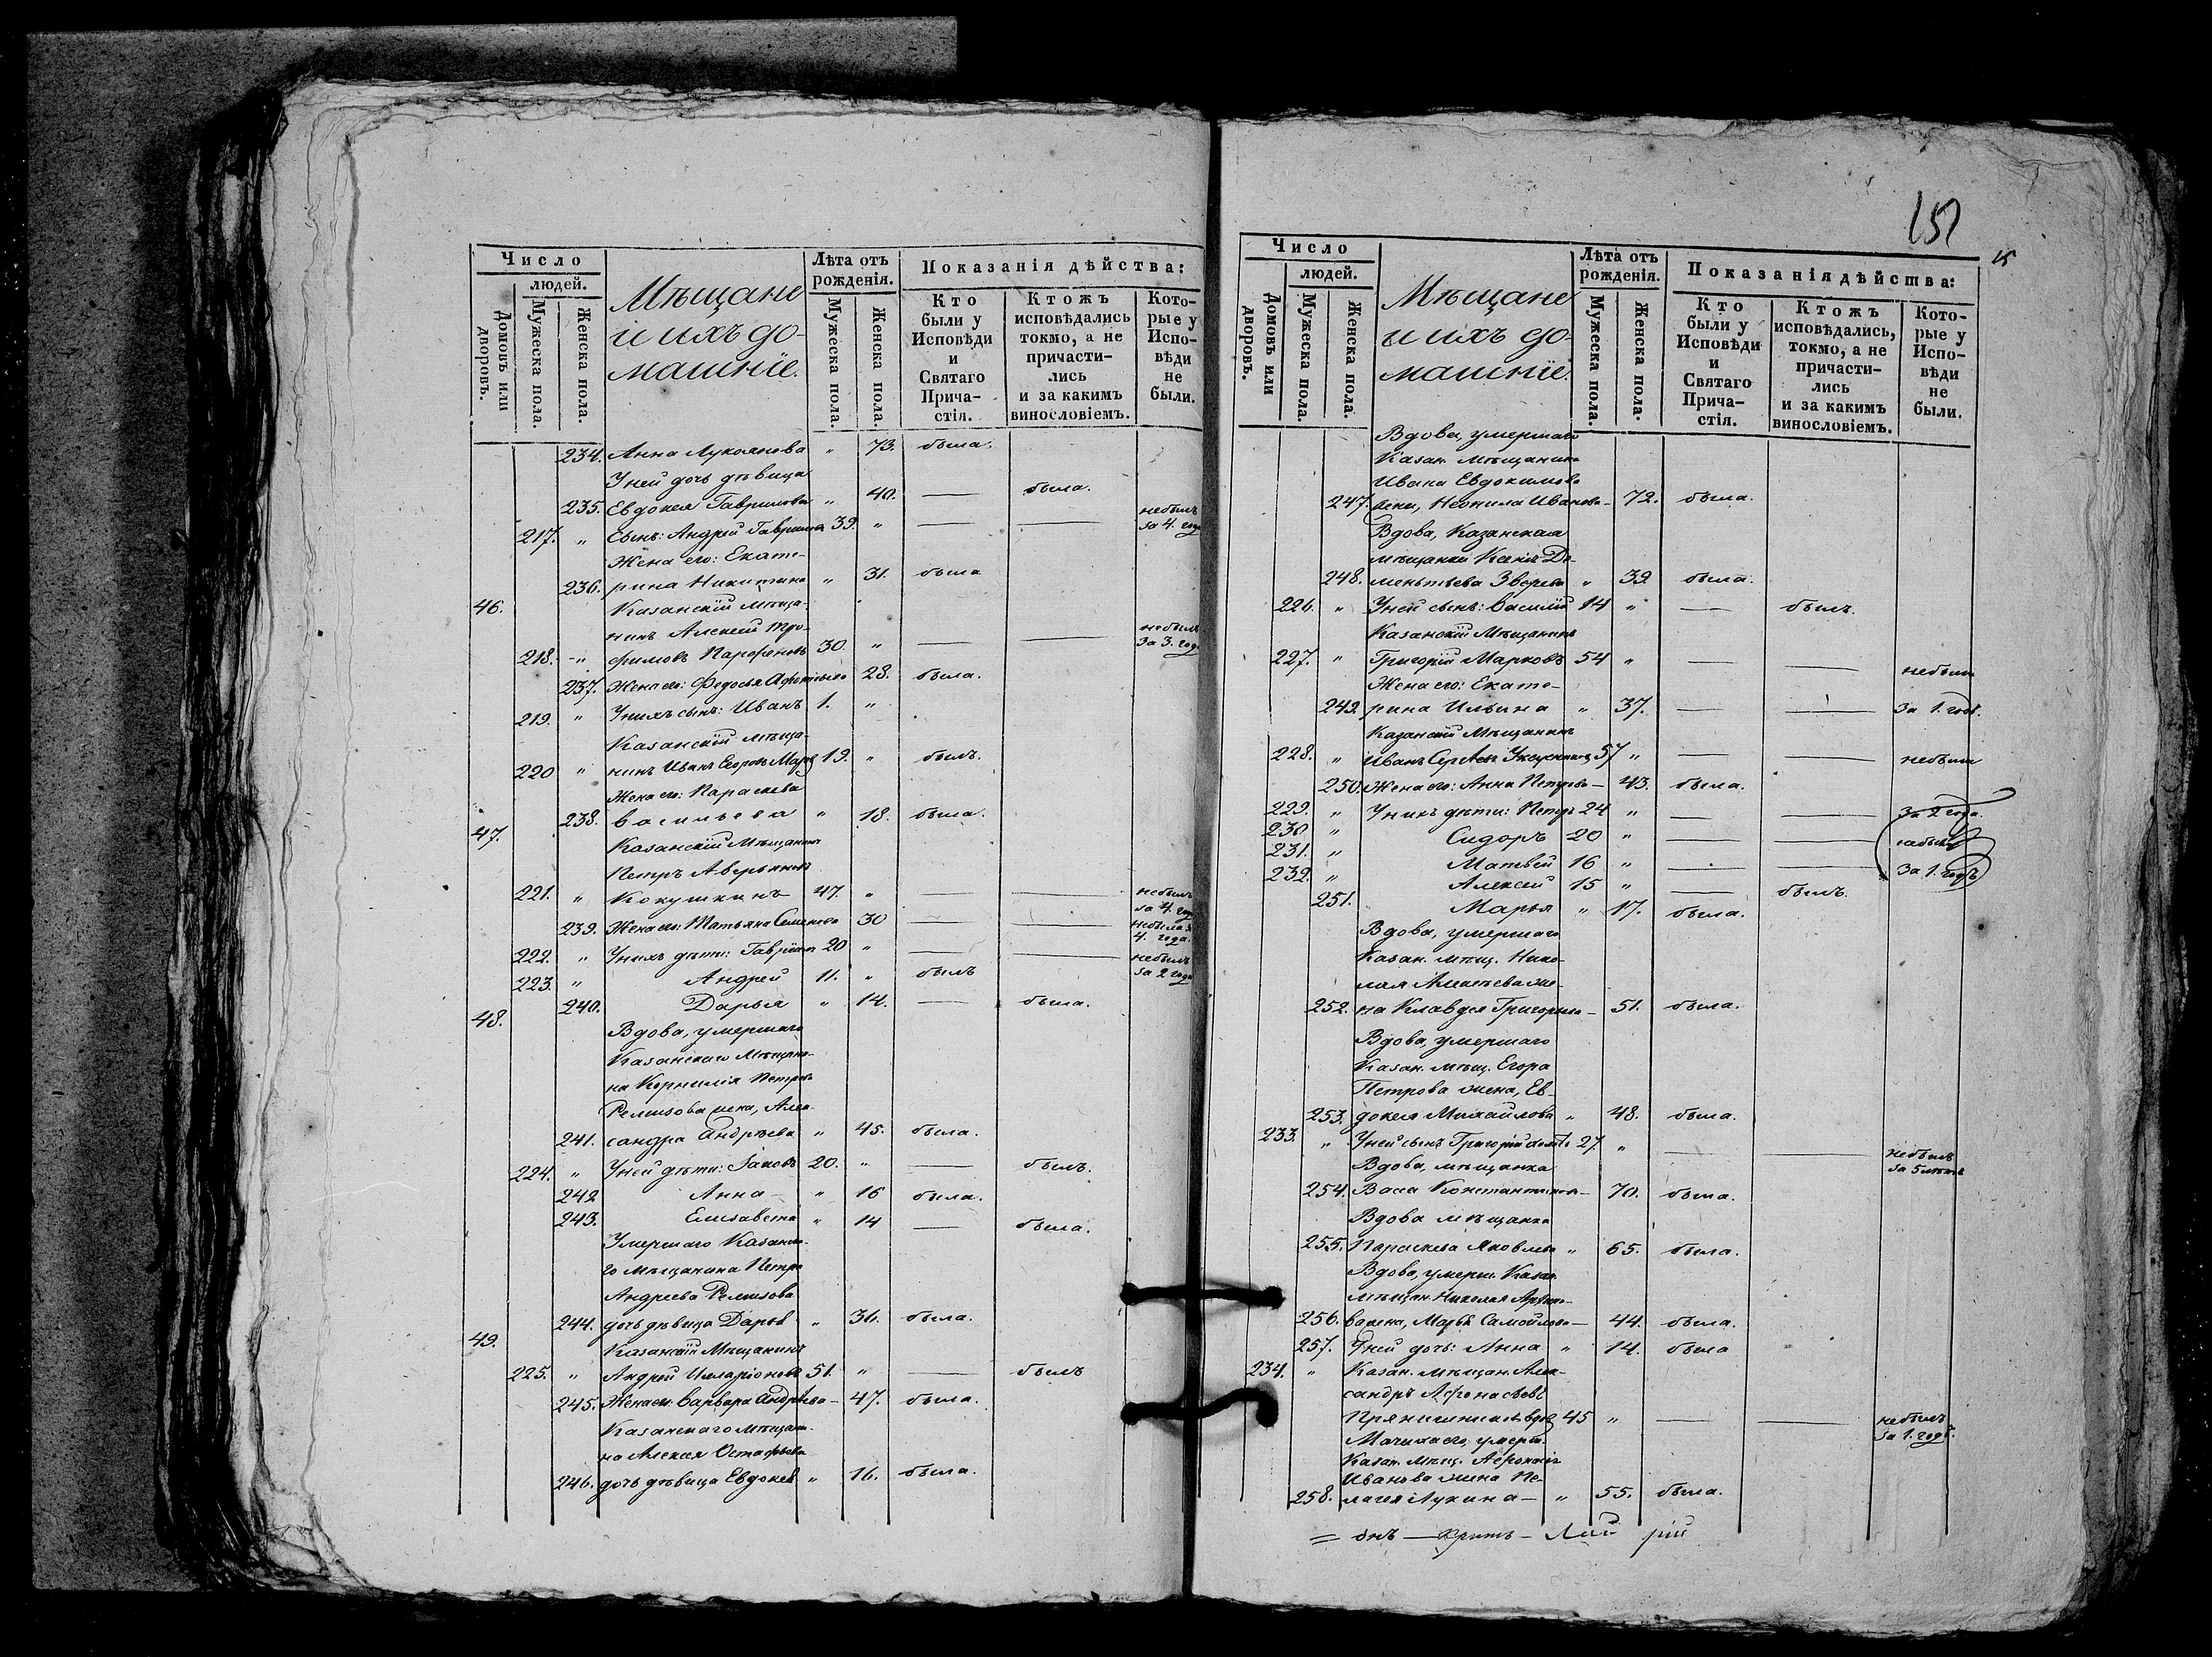 Число
людей.
Домовъ или дворовъ.
Мужеска пола.
Женска пола.
Мѣщане
и ихъ до-
машніе.
Лѣта отъ
рожденія.
Мужеска пола.
Женска пола.
Показанія дѣйства:
Кто
были у
Исповѣди
и
Святаго
Прича-
стія.
Ктожъ
исповѣдались
токмо, а не
причасти-
лись
и за какимъ
винословіемъ.
Кото-
рые у
Испо-
вѣди
не
были.
234. Анна Лукоянова " 73. была.
Уней дочь дѣвица
235. Евдокея Гаврилова " 40. — была.
217. " Сынъ: Андрей Гаврилов 39. " — — небылъ за 4. года
Жена его: Екате-
236. рина Никитина " 31. была
46. Казанскій мѣща-
нинъ Алексей Тро-
218. " фимовъ Парфеновъ 30. " — — небылъ За 3. года
237. Жена его: Федосья 28. была.
219. " Унихъ сынъ: Иванъ 1. "
Казанскій мѣща-
220 " нинъ Иванъ Егоровъ 19. " былъ.
Жена его: Параскева
238. Васильева " 18. была.
47. Казанскій Мѣщанинъ
Петръ Аверьяновъ
221. " Кокушкинъ 47. " — — небылъ за 4. года
239. Жена его: Татьяна Семенова 30 — — небыла 4. года.
222. " Унихъ дѣти: Гавріилъ 20 " — — небылъ за 2 года
223. " Андрей 11. " былъ
240. Дарья " 14. — была.
48. Вдова, умершаго
Казанскаго Мѣщани-
на Корнилія Петрова
Ремизова жена, Алек-
241. сандра Андрѣева " 45. была.
224. " Уней дѣти: Яковъ 20. " — былъ.
242 Анна " 16 была.
243. Елисавета " 14 — была.
Умершаго Казанска-
го мѣщанина Петра
Андреева Ремизова
244. дочь дѣвица Дарья " 36. была.
49. Казанскій Мѣщанинъ
225. " Андрей Илларіоновъ 51. " — былъ
245. Жена его: Варвара Андрѣева — 47. была.
Казанскаго мѣщани-
на Алексея Остафьева
246. дочь дѣвица Евдокея " 16. была.
151
15
Число
людей.
Домовъ или дворовъ.
Мужеска пола.
Женска пола.
Мѣщане
и ихъ до-
машніе.
Лѣта отъ
рожденія.
Мужеска пола.
Женска пола.
Показанія дѣйства:
Кто
были у
Исповѣди
и
Святаго
Прича-
стія.
Ктожъ
исповѣдались,
токмо, а не
причасти-
лись
и за какимъ
винословіемъ.
Кото-
рые у
Испо-
вѣди
не
были.
Вдова, умершаго
Казан. мѣщанина
Ивана Евдокимова
247. жена, Неонила Иванова — 72. была.
Вдова, Казанская
мѣщанка Ксенія Де-
248. ментьева Зверева " 39 была.
226. " Уней сынъ: Василій 14 " — былъ.
Казанскій Мѣщанинъ
227. " Григорій Марковъ 54 " — — небылъ
Жена его: Екате-
249. рина Ильина " 37. — — За 1. годъ.
Казанскій Мѣщанинъ
228. " Иванъ Сергѣевъ 57 " — — небылъ
250. Жена его: Анна Петрова — 43. была.
229. " Унихъ дѣти: Петръ 24 " — — За 2 года.
230 " Сидоръ 20 " — — небылъ
231. " Матвѣй 16 " — — За 1. годъ
232. " Алексей 15 " — былъ.
251. Марья " 17. была.
Вдова, умершаго
Казан. мѣщ. Нико-
лая Алексѣева же-
252. на Клавдея Григорьева — 51. была.
Вдова, умершаго
Казан. мѣщ. Егора
Петрова жена, Ев-
253. докея Михайлова " 48. была.
233. " Уней сынъ Григорій 27. " — — небылъ за 5 лѣтъ
Вдова, мѣщанка
254. Васса Константинова — 70. была.
Вдова мѣщанка
255. Параскева Яковлева " 65. была.
Вдова, умерш. Казан.
мѣщан. Николая
256. ва жена, Марья Самойлова — 44. была.
257. Уней дочь: Анна " 14. была
234. " Казан. мѣщан. Алек-
сандръ Афонасьевъ
Прянишниковъ 45 " — — небылъ за 1. годъ.
Мачиха его, умерш.
Казан. мѣщ. Афонасія
Иванова жена Пе-
258. лагея Лукина — " 55. была.